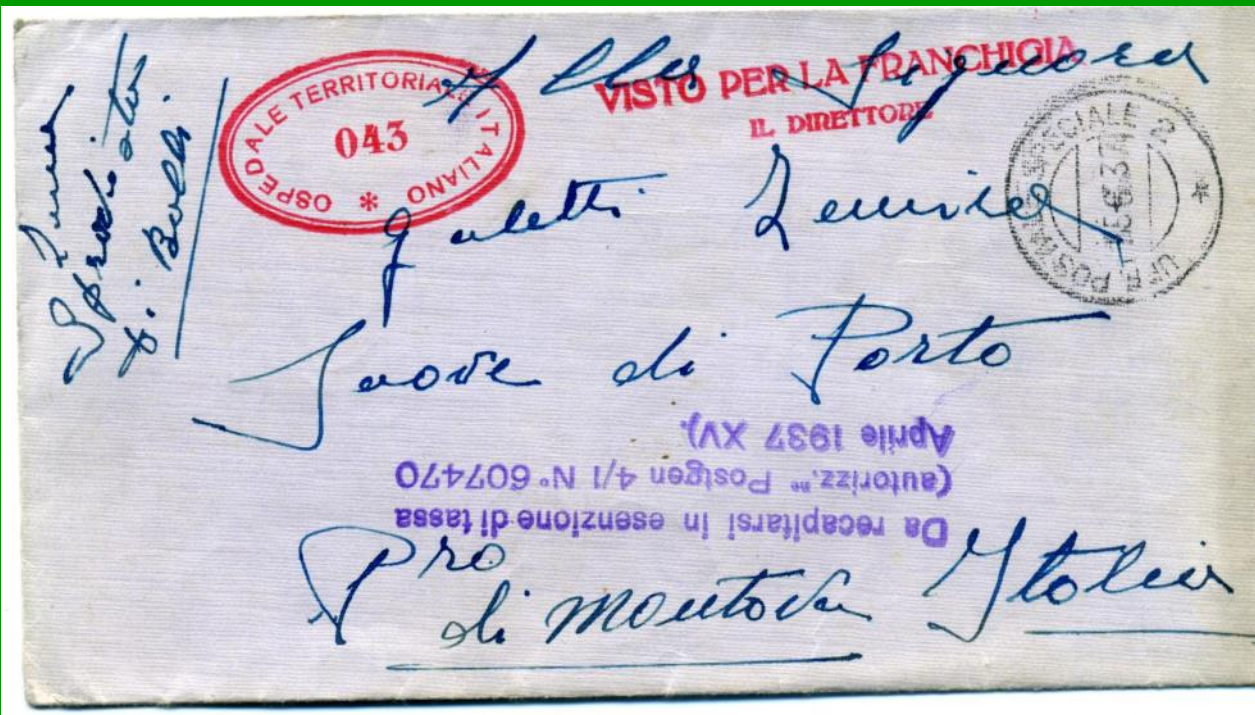 OSPEDALE TERRITORIALE ITALIANO *
043
VISTO PER LA FRANCHIGIA
IL DIRETTORE
UFF. POSTALE SPECIALE 2 *
Alla Signora
Galetti
di Porto
Da recapitarsi in esenzione di tassa
(autorizz.ne Postgen 4/1 N° 607470
Aprile 1937 XV).
Pro
di Montova Italia